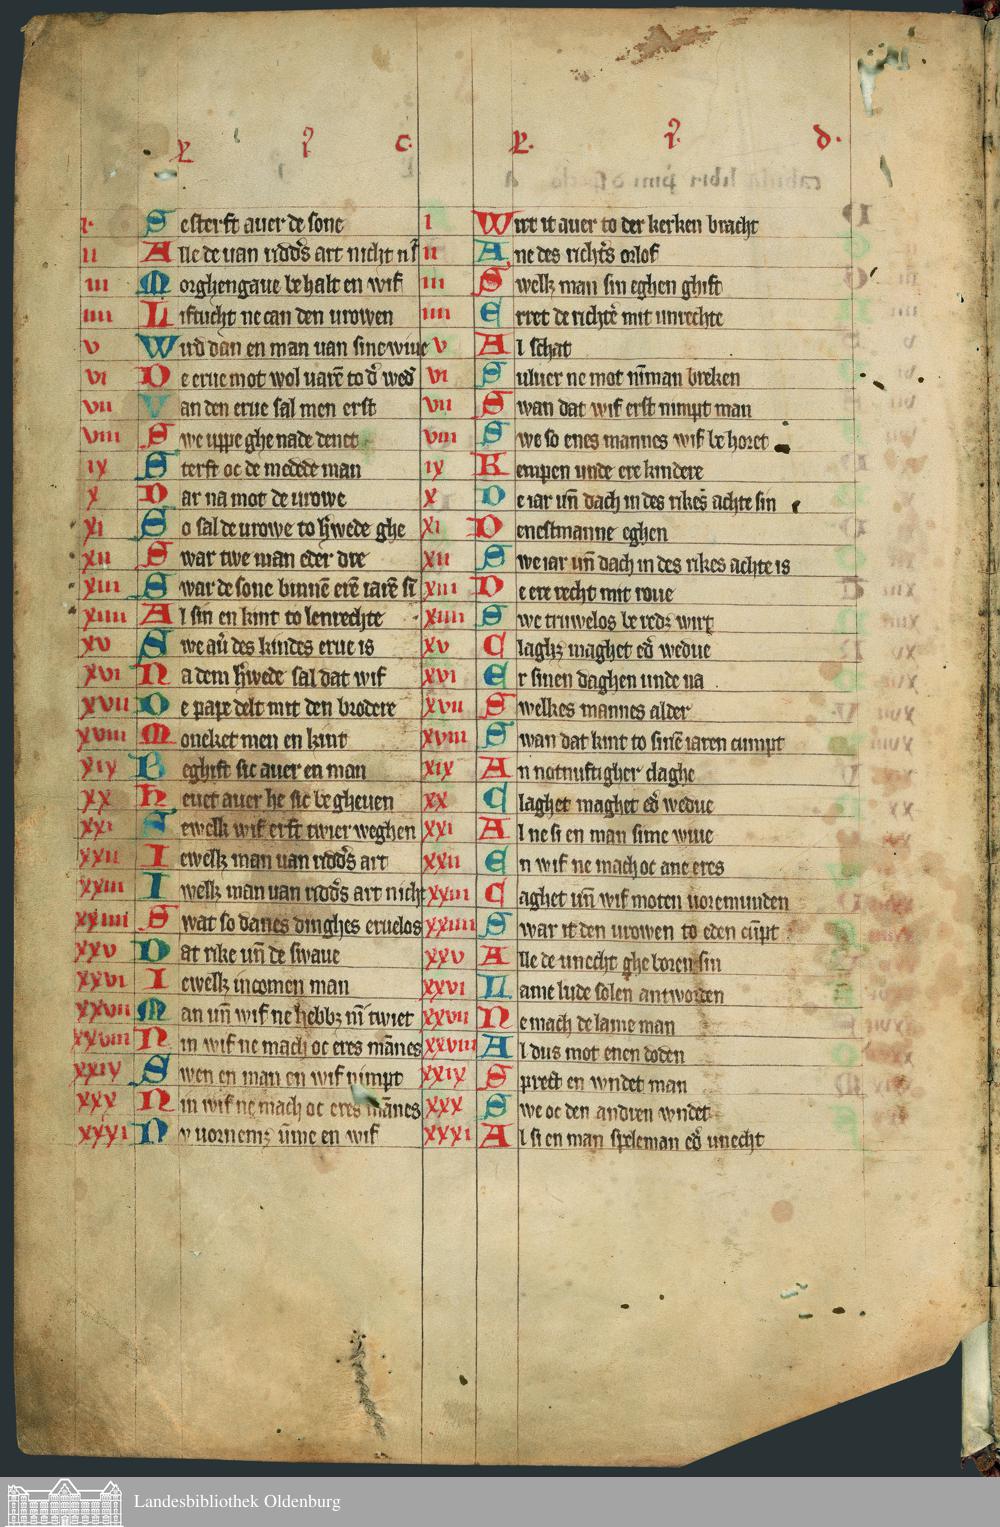 L. i. c.
i. Sesterft auer de sone
ii Alle de uan ridders art nicht
iii Morghengaue behalt en wif
iiii Liftucht ne can den urowen
v Wird dan en man uan sinē wiue
vi De erue mot wol uarē to
vii Van den erue sal men erst
viii Swe uppe ghenade denet
ix Sterft oc de medede man
x Dar na mot de urowe
xi So sal de urowe to h'wede ghe
xii Swar twe man eder dre
xiii Swar de sone binnē erē iarē si
xiiii Al sin en kint to lenrechte
xv Swe des kindes erue is
xvi Na dem h'wede sal dat wif
xvii De pape delt mit den brodere
xviii Moneket men en kint
xix Beghift sic auer en man
xx Heuet auer he sic begheuen
xxi Iewelk wif erft twier weghen
xxii Iewelk man uan ridd's art
xxiii Iwelk man uan ridd's art nicht
xxiiii Swat so danes dinghes eruelos
xxv Dat rike un̄ de swaue
xxvi Iewelk incomen man
xxvii Man un̄ wif ne hebbꝫ nī twiet
xxviii Nin wif ne mach oc eres mānes
xxix Swen en man en wif nimpt
xxx Nin wif ne mach oc eres mānes
xxxi Nv uornemꝫ ūme en wif
L. i. d.
i Wirt it auer to der kerken bracht
ii Ane des richt's orlof
iii Swelk man sin eghen ghift
iiii Erret de richt'e mit unrechte
v Al schat
vi Suluer ne mot nīman breken
vii Swan dat wif erst nimpt man
viii Swe so enes mannes wif behoret
ix Kempen unde ere kindere
x De iar un̄ dach in des rikes achte sin
xi Denestmanne eghen
xii Swe iar un̄ dach in des rikes achte is
xiii De ere recht mit roue
xiiii Swe truwelos beredꝫ wirt
xv Claghꝫ maghet ed' wedue
xvi Er sinen daghen unde na
xvii Swelkes mannes alder
xviii Swan dat kint to sinē iaren cumpt
xix An notnuftigher claghe
xx Claghet maghet ed' wedue
xxi Al ne si en man sime wiue
xxii En wif ne mach oc ane eres
xxiii Maghet un̄ wif moten uoremunden
xxiiii Swar it den urowen to eden
xxv Alle de unecht gheboren sin
xxvi Lame lude solen antworden
xxvii Ne mach de lame man
xxviii Al dus mot enen doden
xxix Sprect en wndet man
xxx Swe oc den andren wndet
xxxi Al si en man speleman ed' unecht
Landesbibliothek Oldenburg